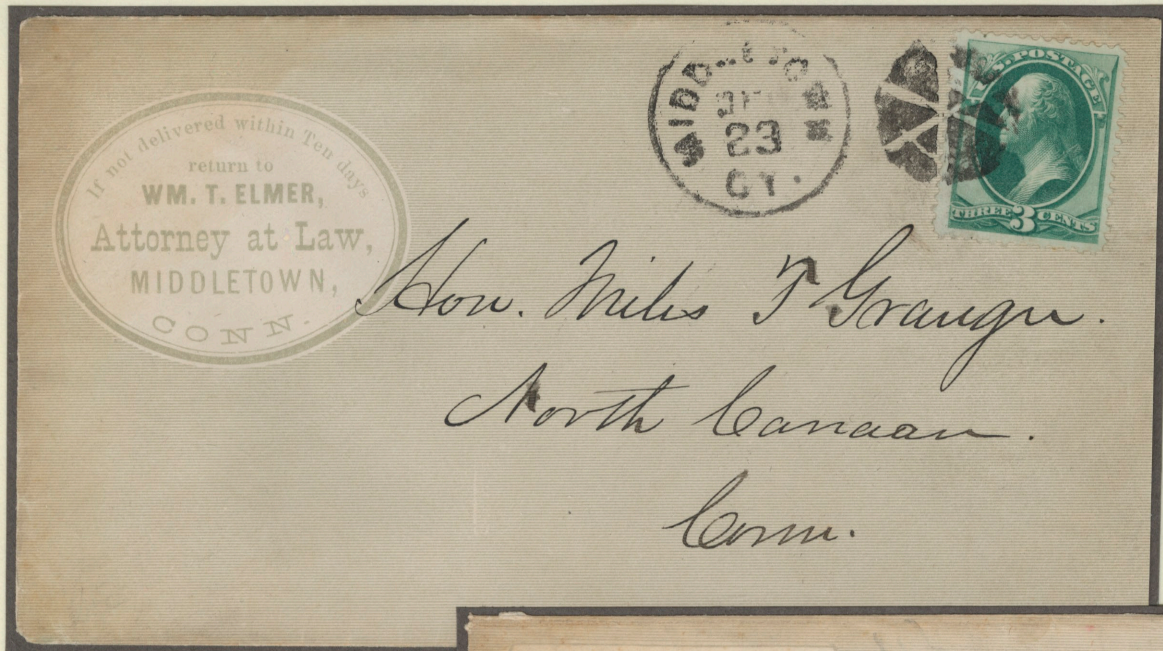 If not delivered within Ten days
return to
WM. T. ELMER,
Attorney at Law,
MIDDLETOWN,
CONN.
MIDDLETOWN
23
CT.
U.S. POSTAGE
THREE 3 CENTS
Hon. Miles T Granger.
North Canaan.
Conn.